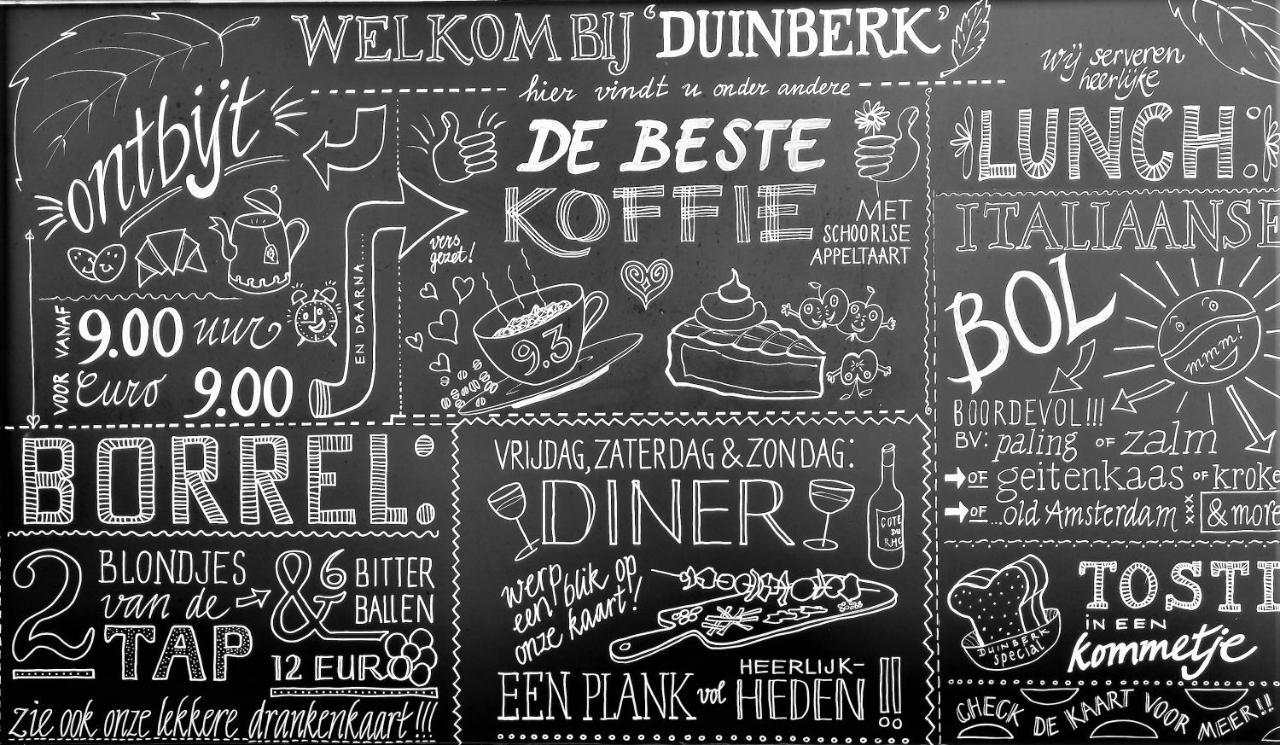 WELKOM BIJ 'DUINBERK'
hier vindt u onder andere
ontbijt
VOOR VANAF
9.00 uur
Euro 9.00
EN DAARNA......
DE BESTE
KOFFIE
MET
SCHOORLSE
APPELTAART
vers
gezet!
9.3
wij serveren
heerlijke
LUNCH:
ITALIAANSE
BOL
mmm!
BOORDEVOL!!!
BV: paling OF zalm
OF geitenkaas OF kroke
OF ...old Amsterdam xxx & more
TOSTI
IN EEN
kommetje
DUINBERK
special
CHECK DE KAART VOOR MEER!!
BORREL:
2 BLONDJES
van de
TAP
& 6 BITTER
BALLEN
12 EURO
zie ook onze lekkere drankenkaart!!!
VRIJDAG, ZATERDAG & ZONDAG:
DINER
COTE
DU
RHO
werp blik op
een
onze kaart!!
EEN PLANK vol HEERLIJK-
HEDEN!!